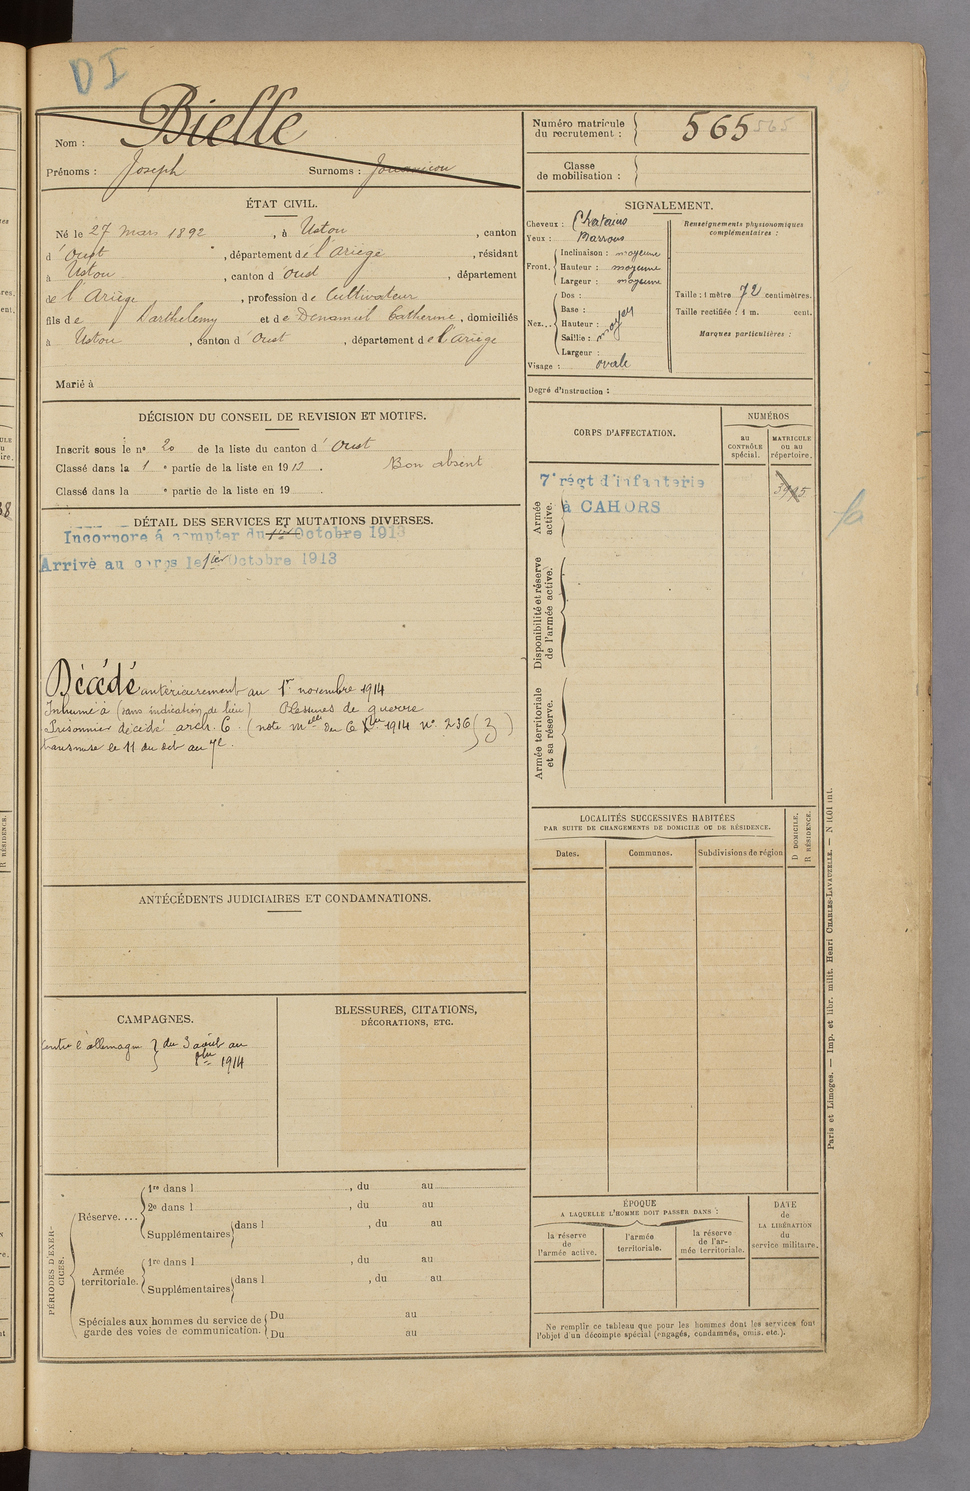 DI
Nom : Bielle
Prénoms : Joseph Surnoms :
Numéro matricule du recrutement : 565 565
Classe de mobilisation :
ÉTAT CIVIL.
Né le 27 mars 1892, à Ustou, canton
d'Oust, département de l'Ariège, résidant
à Ustou, canton d Oust, département
de l'Ariège, profession de Cultivateur
fils de Barthélemy et de Catherine, domiciliés
à Ustou, canton d'Oust, département de l'Ariège
Marié à
SIGNALEMENT.
Cheveux : Chatains
Yeux : Marrons
Front. Inclinaison : moyenne
Hauteur : moyenne
Largeur : moyenne
Nez... Dos :
Base :
Hauteur : moyen
Saillie :
Largeur :
Visage : ovale
Renseignements physionomiques complémentaires :
Taille : 1 mètre 72 centimètres.
Taille rectifiée : 1 m. cent.
Marques particulières :
Degré d'instruction :
DÉCISION DU CONSEIL DE REVISION ET MOTIFS.
Inscrit sous le nº 20 de la liste du canton d'Oust
Classé dans la 1 e partie de la liste en 1913. Bon absent
Classé dans la e partie de la liste en 19 .
CORPS D'AFFECTATION.
NUMÉROS
au CONTRÔLE spécial.
MATRICULE OU AU répertoire.
Armée active.
7e régt d'infanterie
à CAHORS
Disponibilité et réserve de l'armée active.
Armée territoriale et sa réserve.
DÉTAIL DES SERVICES ET MUTATIONS DIVERSES.
Incorporé à compter du 1er Octobre 1913
Arrivé au corps le 1er Octobre 1913
Décédé antérieurement au 1er novembre 1914
Inhumé à (sans indication de lieu) Blessures de guerre
Prisonnier décédé arch. 6. (note mlle du 6 Xbre 1914 nº 236 (3)
transmise le 11 du dct au 7e.
LOCALITÉS SUCCESSIVES HABITÉES
PAR SUITE DE CHANGEMENTS DE DOMICILE OU DE RÉSIDENCE.
Dates. Communes. Subdivisions de région
D DOMICILE.
R RÉSIDENCE.
ANTÉCÉDENTS JUDICIAIRES ET CONDAMNATIONS.
CAMPAGNES.
Contre l'allemagne du 3 août au
1914
BLESSURES, CITATIONS,
DÉCORATIONS, ETC.
PÉRIODES D'EXERCICES.
Réserve.... 1re dans l , du au
2e dans l , du au
Supplémentaires dans l , du au
Armée territoriale. 1re dans l , du au
Supplémentaires dans l , du au
Spéciales aux hommes du service de garde des voies de communication. Du au
Du au
ÉPOQUE
A LAQUELLE L'HOMME DOIT PASSER DANS :
la réserve de l'armée active.
l'armée territoriale.
la réserve de l'armée territoriale.
DATE de LA LIBÉRATION du service militaire.
Ne remplir ce tableau que pour les hommes dont les services font
l'objet d'un décompte spécial (engagés, condamnés, omis, etc.).
Paris et Limoges. — Imp. et libr. milit. Henri CHARLES-LAVAUZELLE. — N 1001 int.